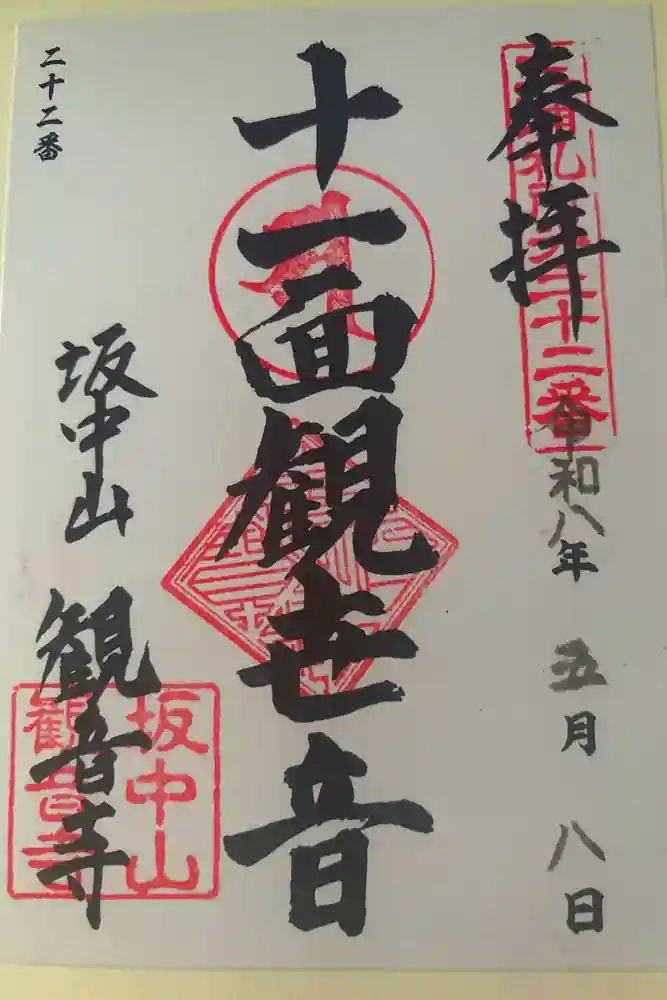 奉拝
二十二番
令和八年 五月 八日
十一面観世音
二十二番
坂中山 観音寺
坂中山
観音寺